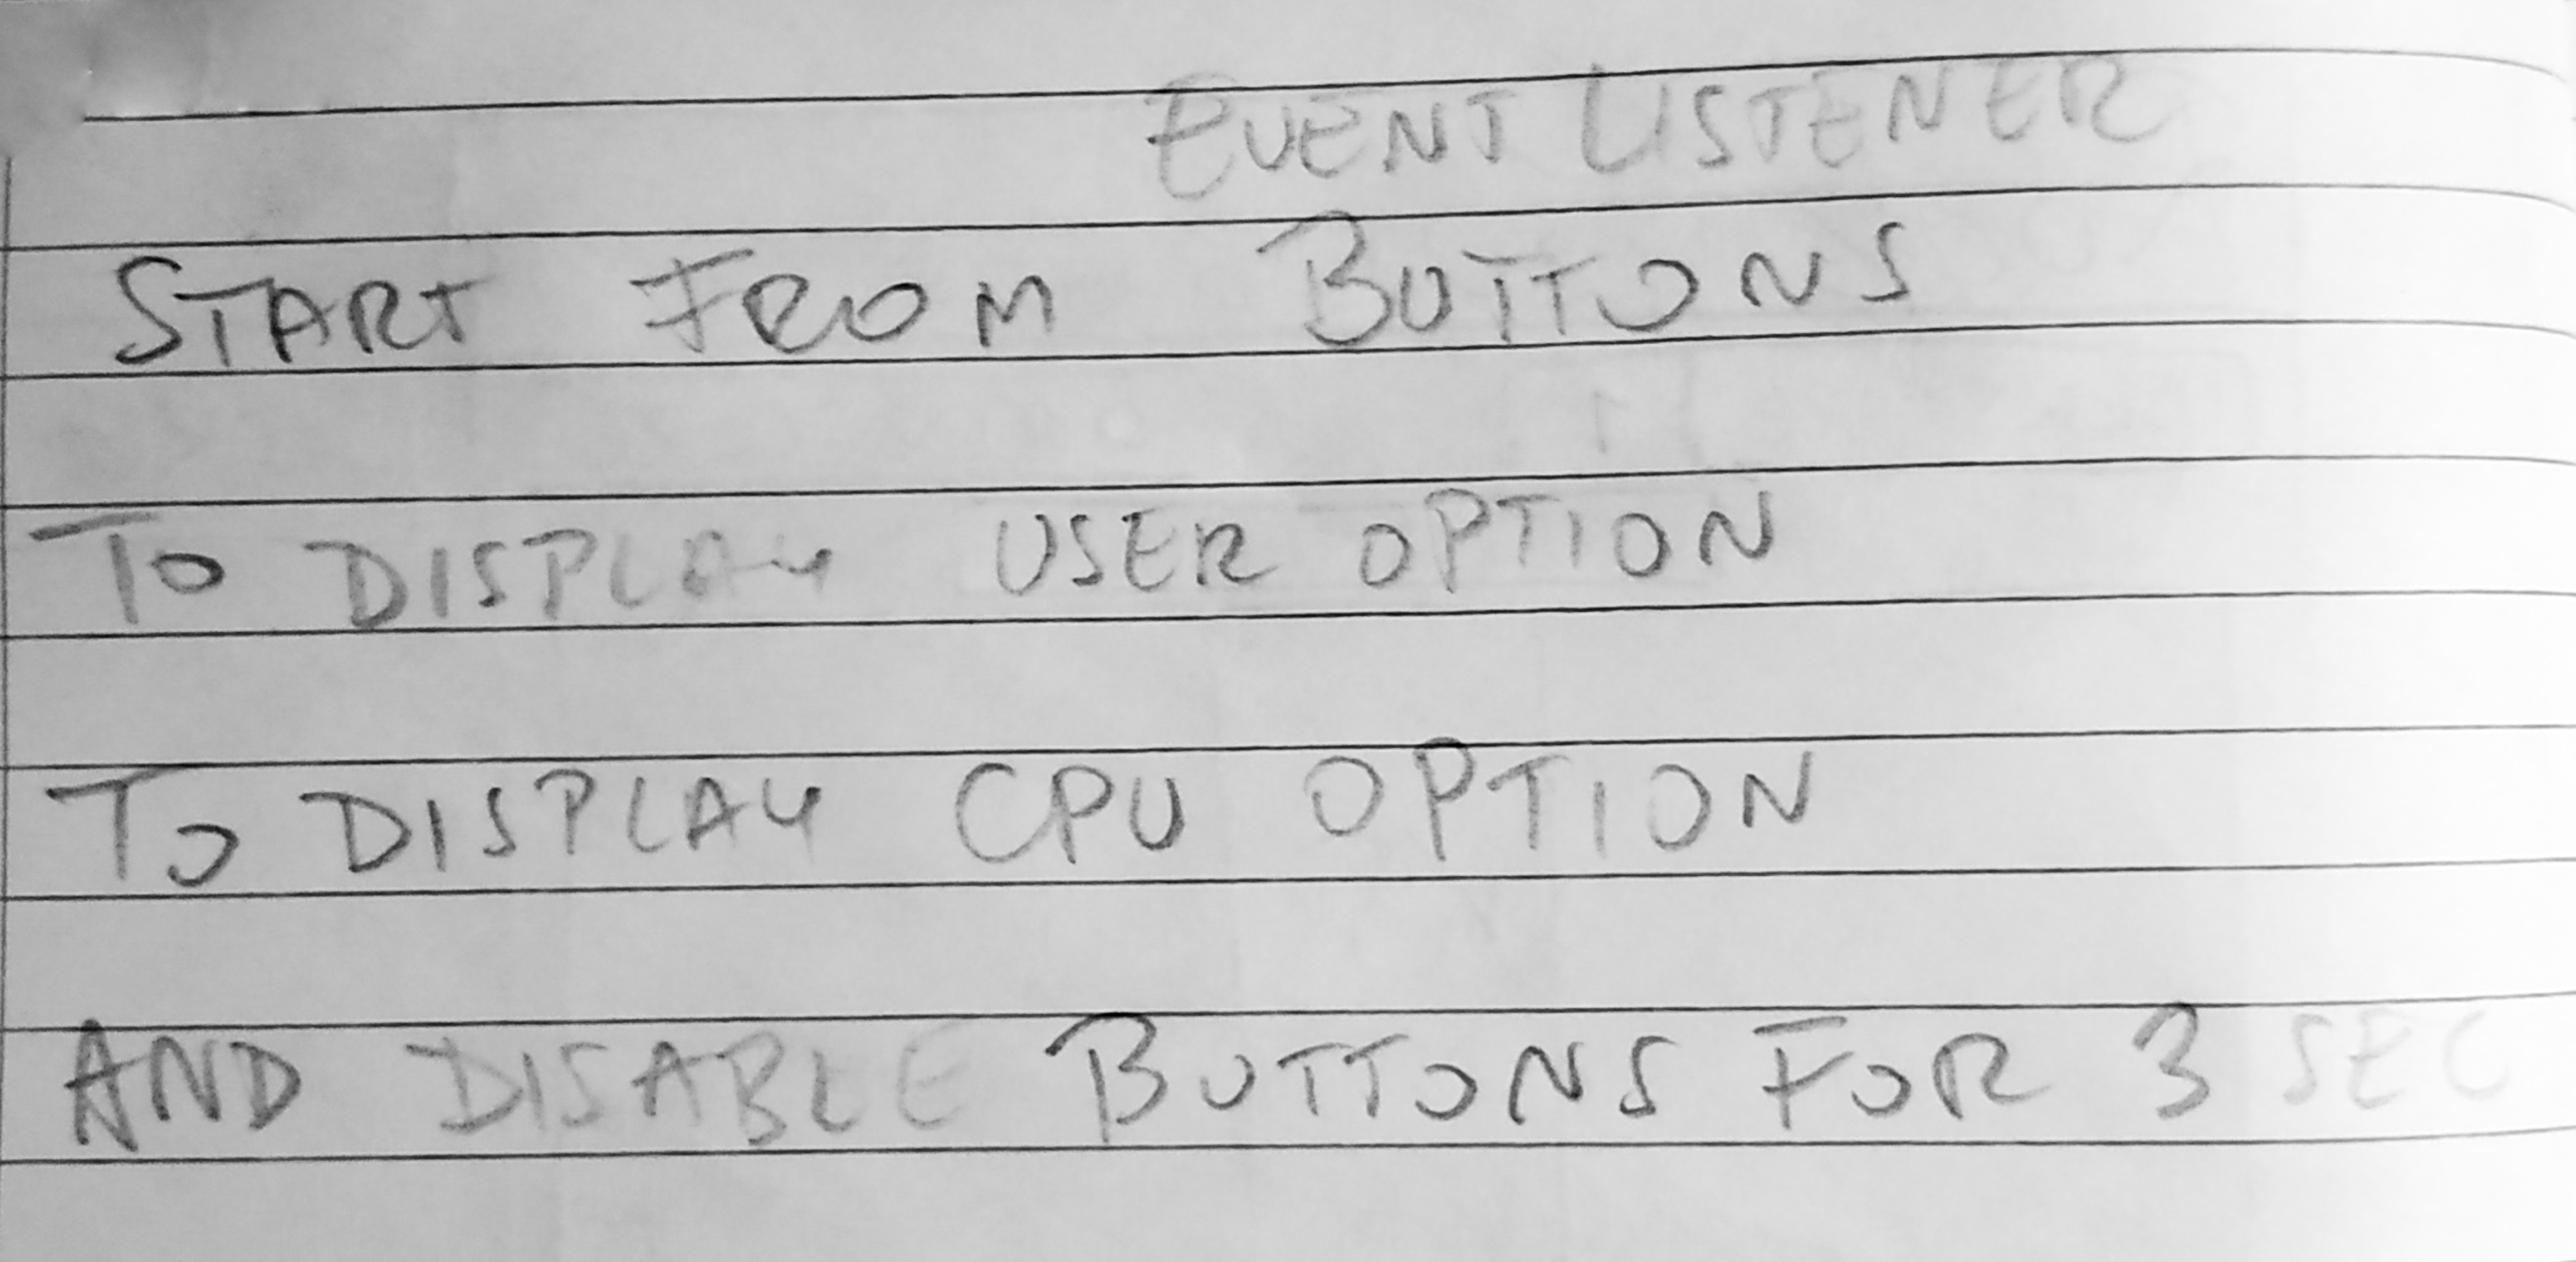 EVENT LISTENER
START FROM BUTTONS
TO DISPLAY USER OPTION
TO DISPLAY CPU OPTION
AND DISABLE BUTTONS FOR 3 SEC